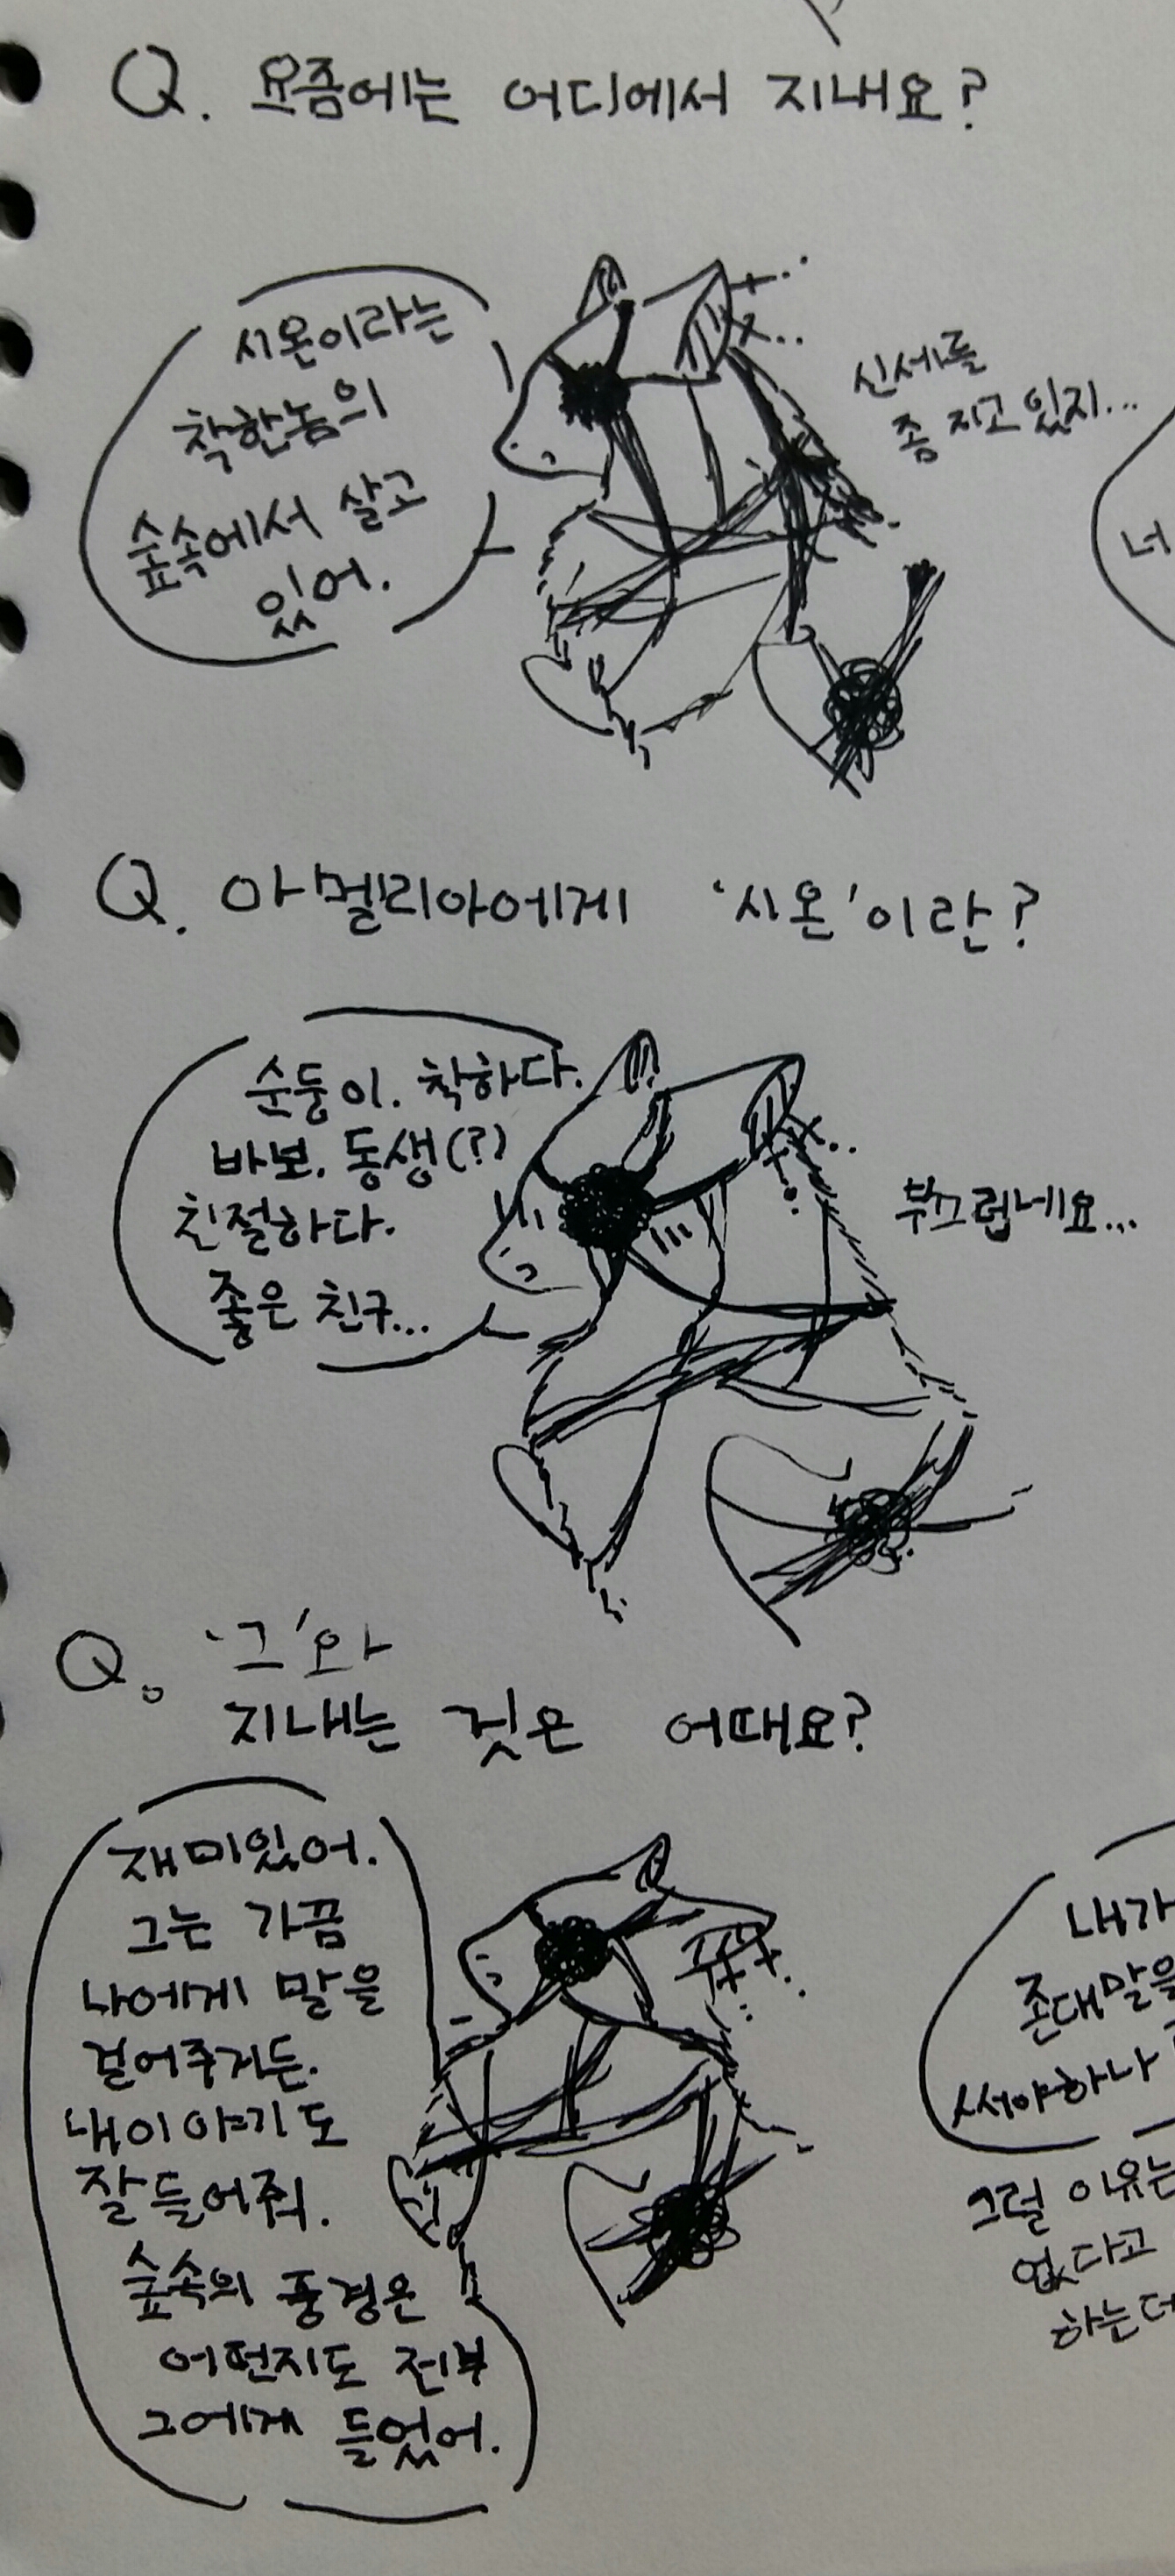 Q. 요즘에는 어디에서 지내요?
시온이라는
착한놈의
숲속에서 살고
있어.
신세를
좀 지고 있지...
너
Q. 아멜리아에게 '시온'이란?
순둥이. 착하다.
바보. 동생(?)
친절하다.
좋은 친구...
부끄럽네요...
Q. '그'와
지내는 것은 어때요?
재미있어.
그는 가끔
나에게 말을
걸어주거든.
내 이야기도
잘 들어줘.
숲속의 풍경은
어떤지도 전부
그에게 들었어.
내가
존대말을
써야하나
그럴 이유는
없다고
하는데